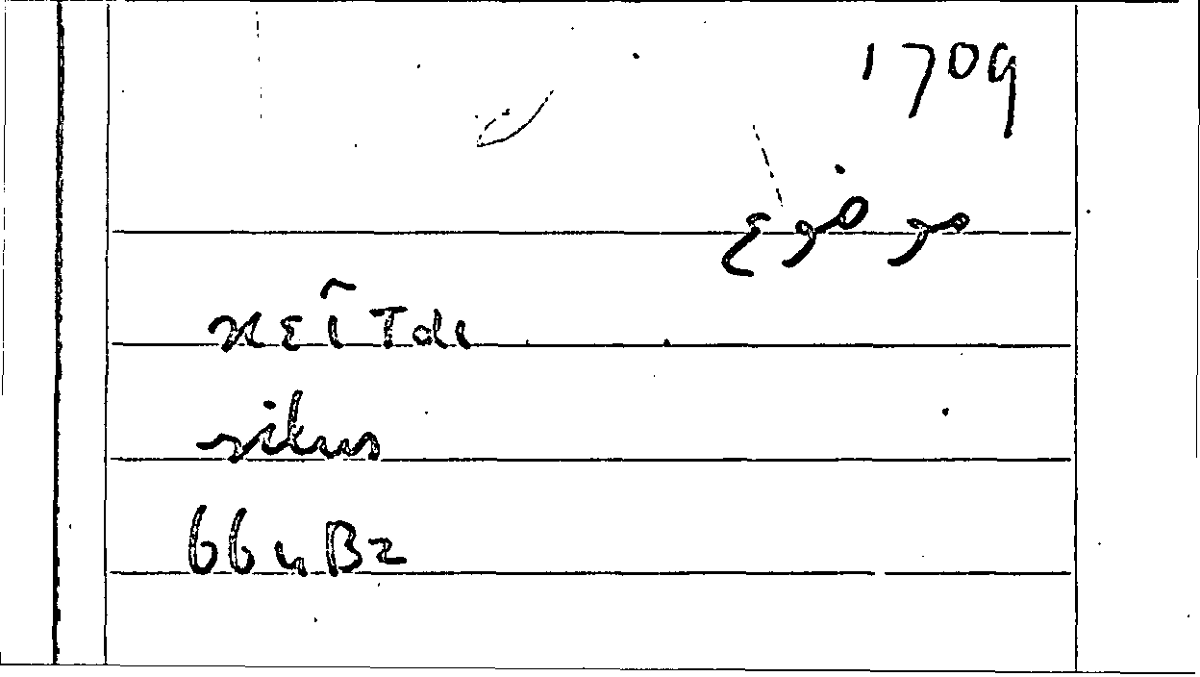 1709
موضوع
κεῖται
situs
664B2